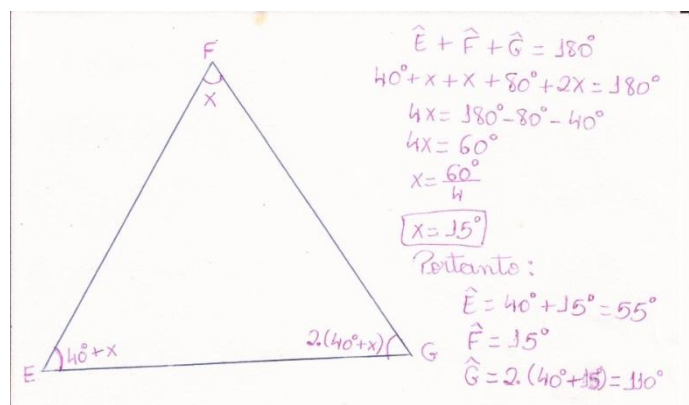 F
x
E
40°+x
2.(40°+x)
G
Ê + F̂ + Ĝ = 180°
40°+x+x+80°+2x=180°
4x=180°-80°-40°
4x=60°
x=60°/4
x=15°
Portanto:
Ê=40°+15°=55°
F̂=15°
Ĝ=2.(40°+15°)=110°